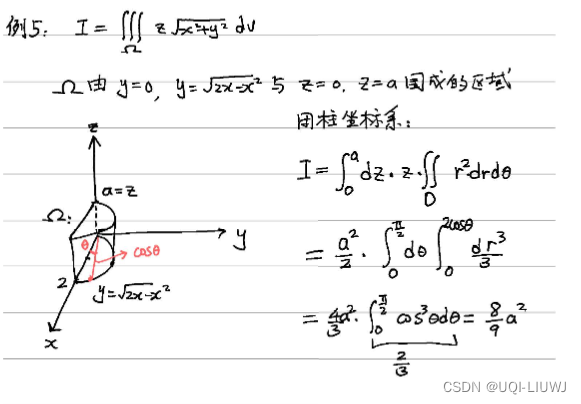 例5: I = ∭_Ω z √(x²+y²) dv
Ω由 y=0, y=√(2x-x²) 与 z=0, z=a 围成的区域
用柱坐标系:
I = ∫₀^a dz · z · ∬_D r² dr dθ
= a²/2 · ∫₀^(π/2) dθ ∫₀^(2cosθ) dr³/3
= 4a²/3 · ∫₀^(π/2) cos³θ dθ = 8/9 a²
2/3
z
a=z
Ω:
θ
cosθ
y
2
y=√(2x-x²)
x
CSDN @UQI-LIUWJ